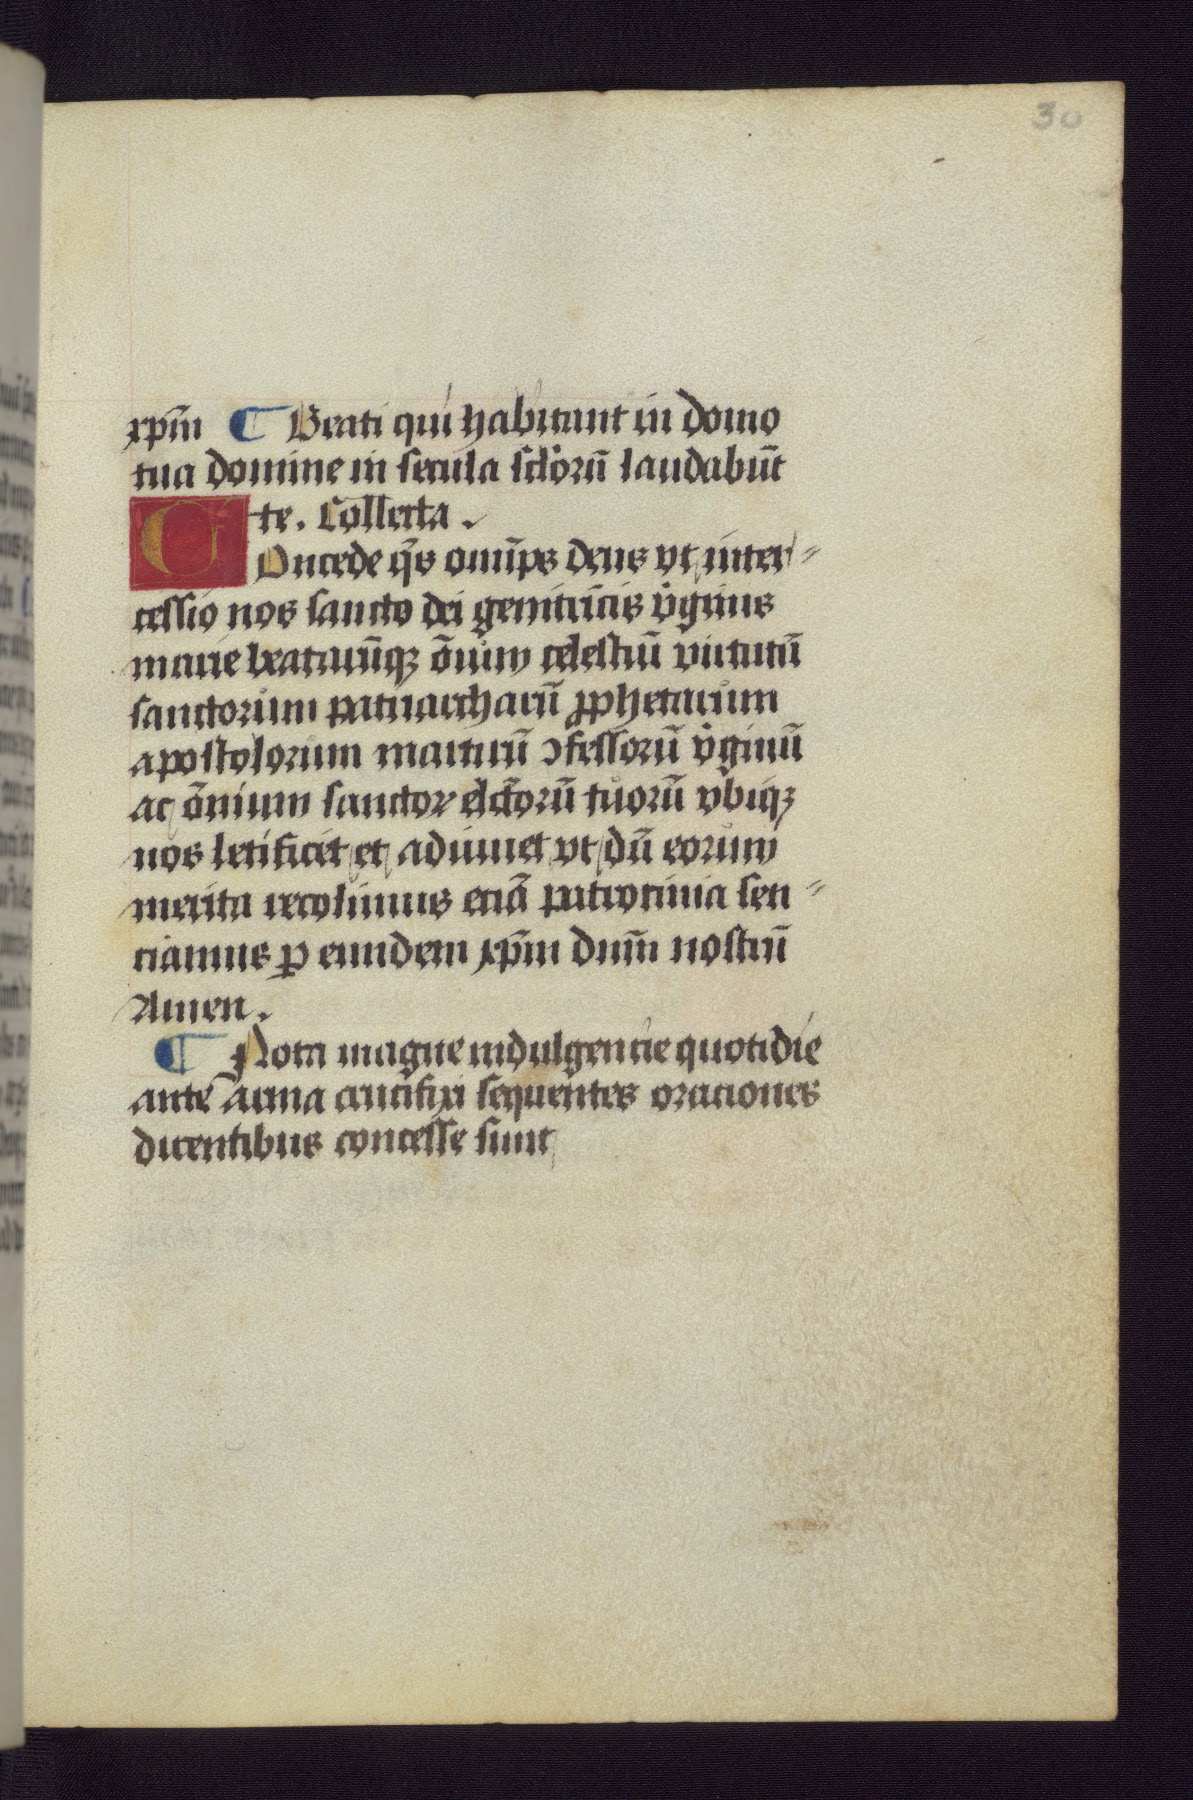 30
xp̄m ¶ Beati qui habitant in domo
tua domine in secula sc̄lorū laudabūt
te. Collecta.
Concede q̄s om̄ps deus vt inter=
cessio nos sancte dei genitricis v̓ginis
marie beatarūqꝫ ōnium celestiū virtutū
sanctorum patriarcharū ꝓphetarum
apostolorum martirū ↄfessorū v̓ginū
ac ōnium sanctoꝝ elc̄torū tuorū vbiqꝫ
nos letificet et adiuuet vt dū eorum
merita recolimus eciā patrocinia sen=
ciamus ꝑ eundem xp̄m dnm̄ nostrū
Amen.
¶ Nota magne indulgencie quotidie
ante arma crucifixi sequentes oraciones
dicentibus concesse sunt